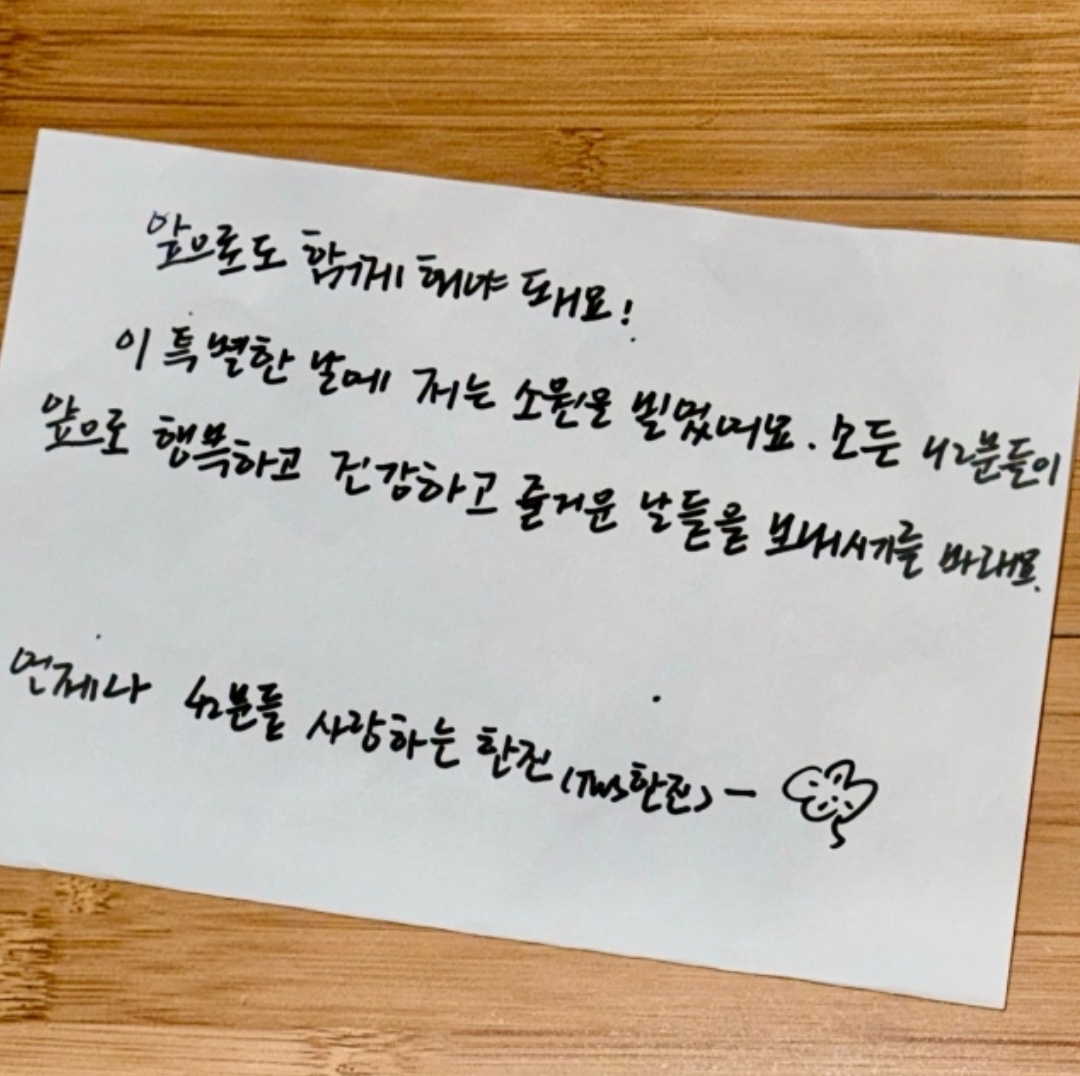 앞으로도 함께 해야 돼요!
이 특별한 날에 저는 소원을 빌었어요. 모든 42분들이
앞으로 행복하고 건강하고 즐거운 날들을 보내시기를 바래요.
언제나 42분들 사랑하는 한진 (TWS한진) -